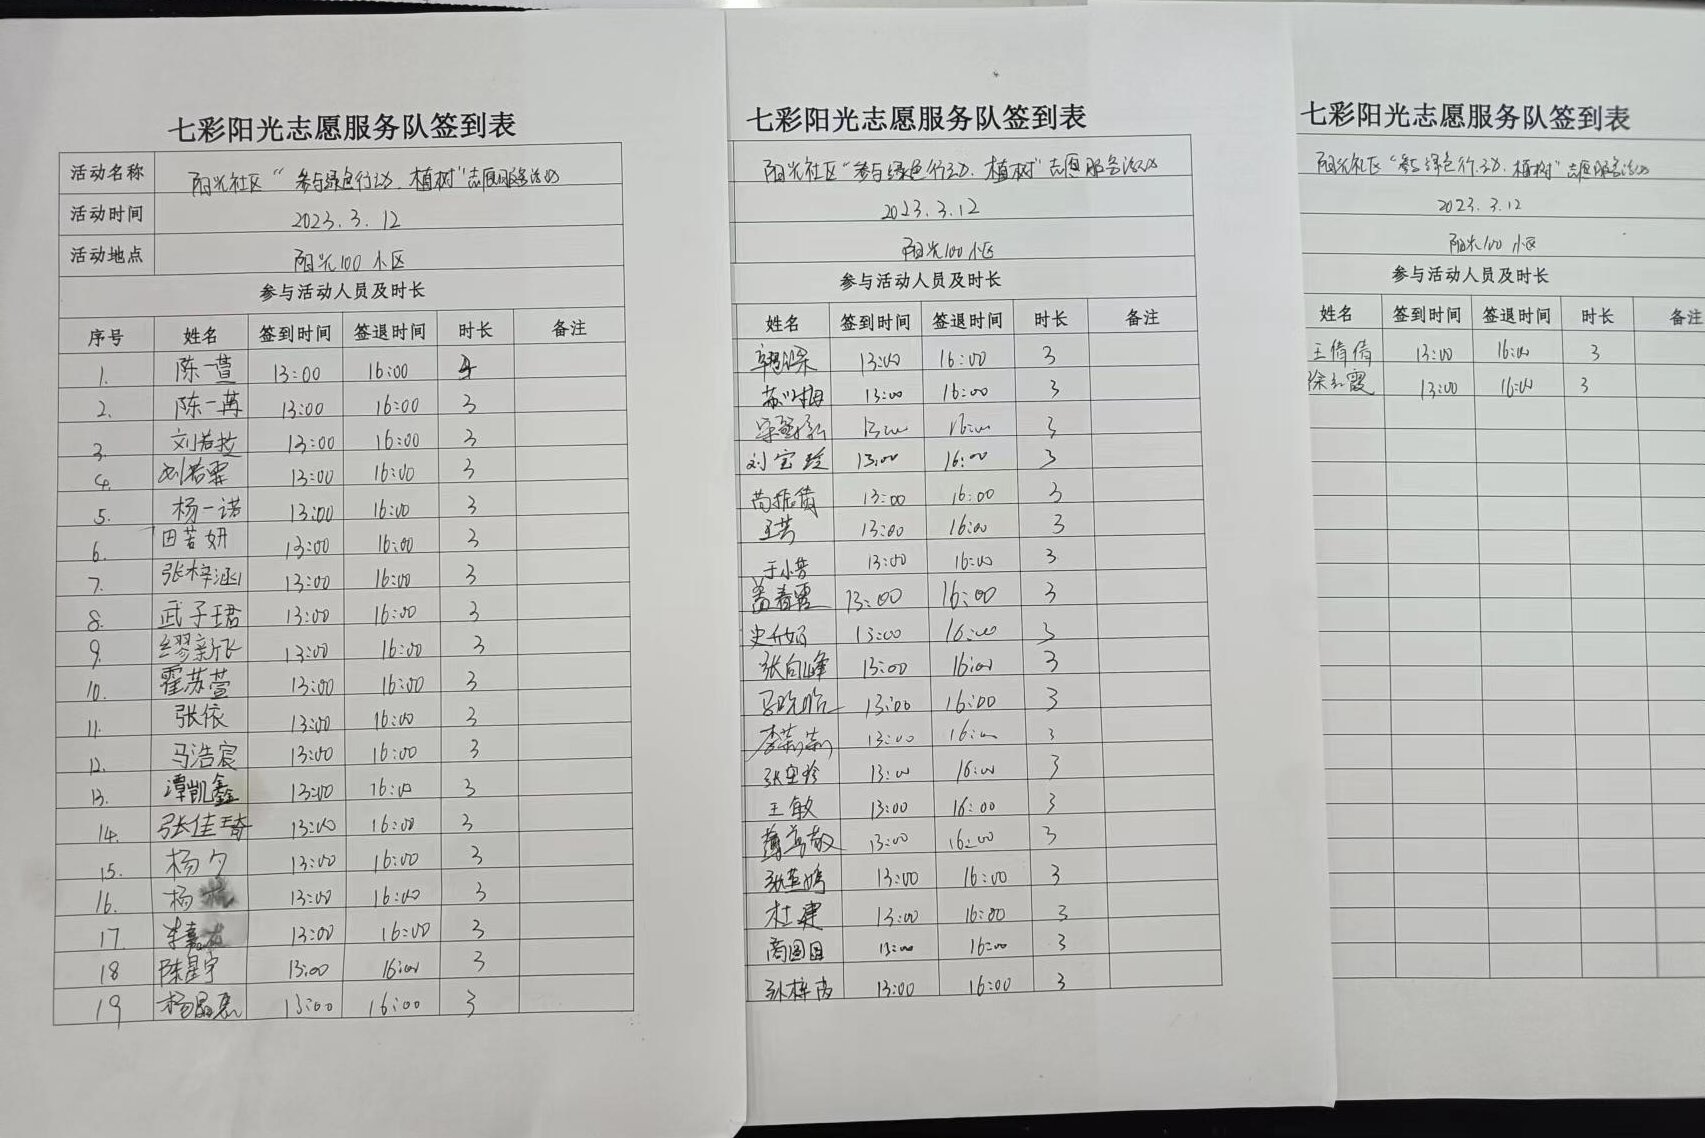 七彩阳光志愿服务队签到表
活动名称 阳光社区“参与绿色行动、植树”志愿服务活动
活动时间 2023.3.12
活动地点 阳光100小区
参与活动人员及时长
序号 姓名 签到时间 签退时间 时长 备注
1. 陈一萱 13:00 16:00
2. 陈一苒 13:00 16:00 3
3. 刘若 13:00 16:00 3
4. 刘若霏 13:00 16:00 3
5. 杨一诺 13:00 16:00 3
6. 田若妍 13:00 16:00 3
7. 张梓涵 13:00 16:00 3
8. 武子珺 13:00 16:00 3
9. 缪新 13:00 16:00 3
10. 霍苏萱 13:00 16:00 3
11. 张依 13:00 16:00 3
12. 马浩宸 13:00 16:00 3
13. 谭凯鑫 13:00 16:00 3
14. 张佳琦 13:00 16:00 3
15. 杨夕 13:00 16:00 3
16. 杨 13:00 16:00 3
17. 李嘉 13:00 16:00 3
18 陈星宇 13:00 16:00 3
19 杨 13:00 16:00 3
七彩阳光志愿服务队签到表
阳光社区“参与绿色行动、植树”志愿服务活动
2023.3.12
阳光100小区
参与活动人员及时长
姓名 签到时间 签退时间 时长 备注
13:00 16:00 3
13:00 16:00 3
13:00 16:00 3
刘宝玲 13:00 16:00 3
尚振倩 13:00 16:00 3
王芸 13:00 16:00 3
于小芳 13:00 16:00 3
盖春霞 13:00 16:00 3
13:00 16:00 3
张向峰 13:00 16:00 3
13:00 16:00 3
李莉莉 13:00 16:00 3
13:00 16:00 3
王敏 13:00 16:00 3
13:00 16:00 3
13:00 16:00 3
杜建 13:00 16:00 3
商圆圆 13:00 16:00 3
13:00 16:00 3
七彩阳光志愿服务队签到表
阳光社区“参与绿色行动、植树”志愿服务活动
2023.3.12
阳光100小区
参与活动人员及时长
姓名 签到时间 签退时间 时长 备注
王倩倩 13:00 16:00 3
徐红霞 13:00 16:00 3